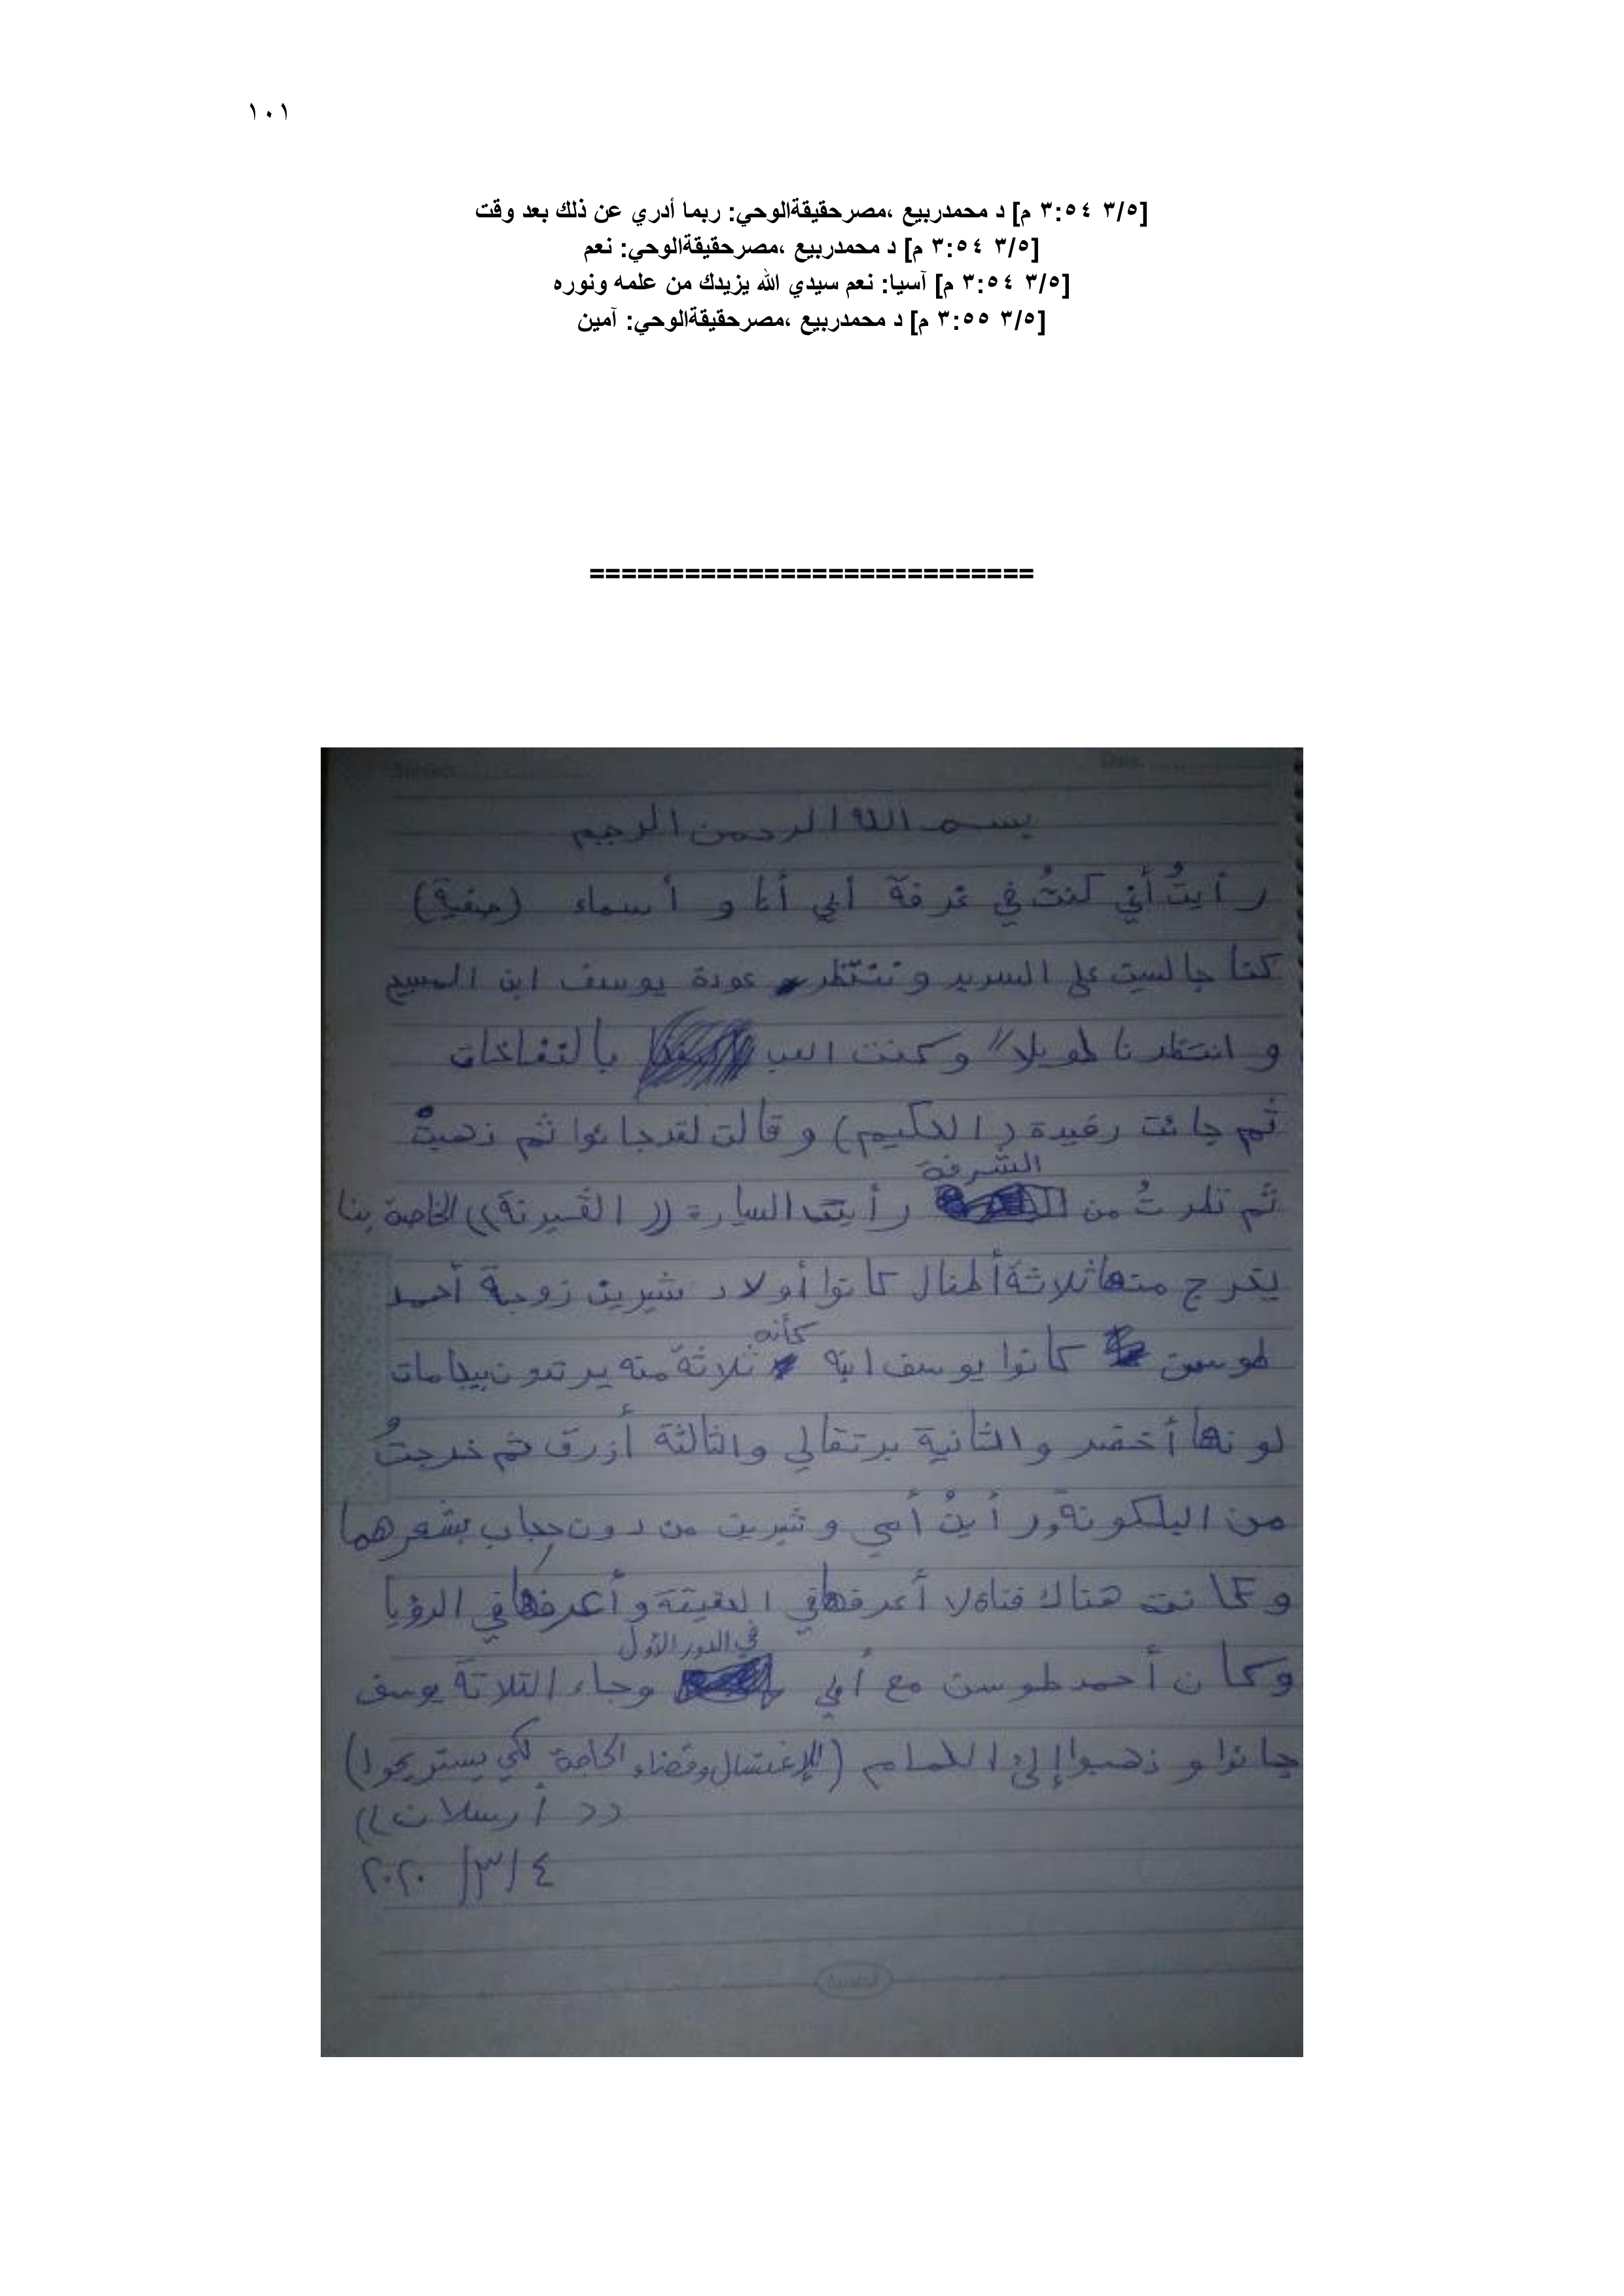 ١٠١
[٣/٥ ٣:٥٤ م] د محمدربيع ،مصرحقيقةالوحي: ربما أدري عن ذلك بعد وقت
[٣/٥ ٣:٥٤ م] د محمدربيع ،مصرحقيقةالوحي: نعم
[٣/٥ ٣:٥٤ م] آسيا: نعم سيدي الله يزيدك من علمه ونوره
[٣/٥ ٣:٥٥ م] د محمدربيع ،مصرحقيقةالوحي: آمين
============================
بسم الله الرحمن الرحيم
رأيتُ أني كنتُ في غرفة أبي أنا و أسماء (صفية)
كنا جالسين على السرير وننتظر عودة يوسف ابن المسيح
و انتظرنا طويلا" وكنت العب بالنفاخات
ثم جائت رفيدة (الحكيم) و قالت لقد جائوا ثم ذهبتُ
ثم نظرتُ من الشرفة رأيت السيارة ((الڤيرنة)) الخاصة بنا
يخرج منها ثلاثة أطفال كانوا أولاد شيرين زوجة أحمد
طوسن كانوا يوسف ابنه كأنه ثلاثة منه يرتدون بيجامات
لونها أخضر و الثانية برتقالي والثالثة أزرق ثم خرجتُ
من البلكونة ورأيتُ أمي و شيرين من دون حجاب بشعرهما
و كانت هناك فتاة لا أعرفها في الحقيقة و أعرفها في الرؤيا
وكان أحمد طوسن مع أبي في الدور الأول وجاء الثلاثة يوسف
جائوا و ذهبوا إلى الحمام (للإغتسال وقضاء الحاجة لكي يستريحوا)
((أرسلان))
٤/٣/٢٠٢٠